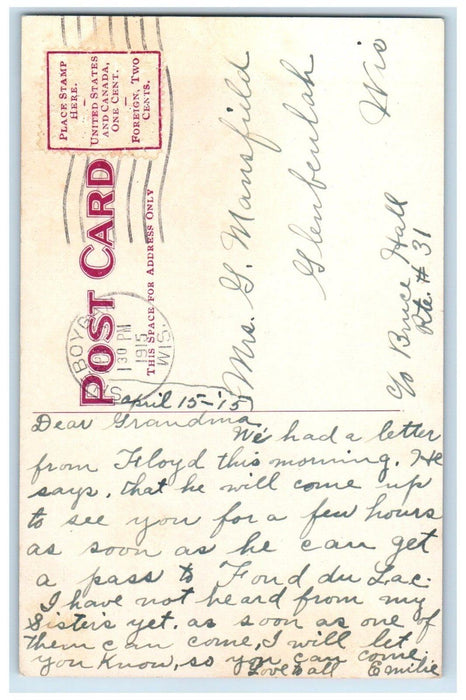 PLACE STAMP
HERE.
UNITED STATES
AND CANADA,
ONE CENT.
FOREIGN, TWO
CENTS.
POST CARD
THIS SPACE FOR ADDRESS ONLY
130 PM
1915
WIS.
Mrs. G. Mansfield
Glenbeulah
Wis
c/o Bruce Hall
Rte. # 31
April 15-'15
Dear Grandma
We had a letter
from Floyd this morning. He
says, that he will come up
to see you for a few hours
as soon as he can get
a pass to Fond du Lac.
I have not heard from my
Sisters yet. as soon as one of
them can come, I will let
you know, so you can come.
Love to all Emilie